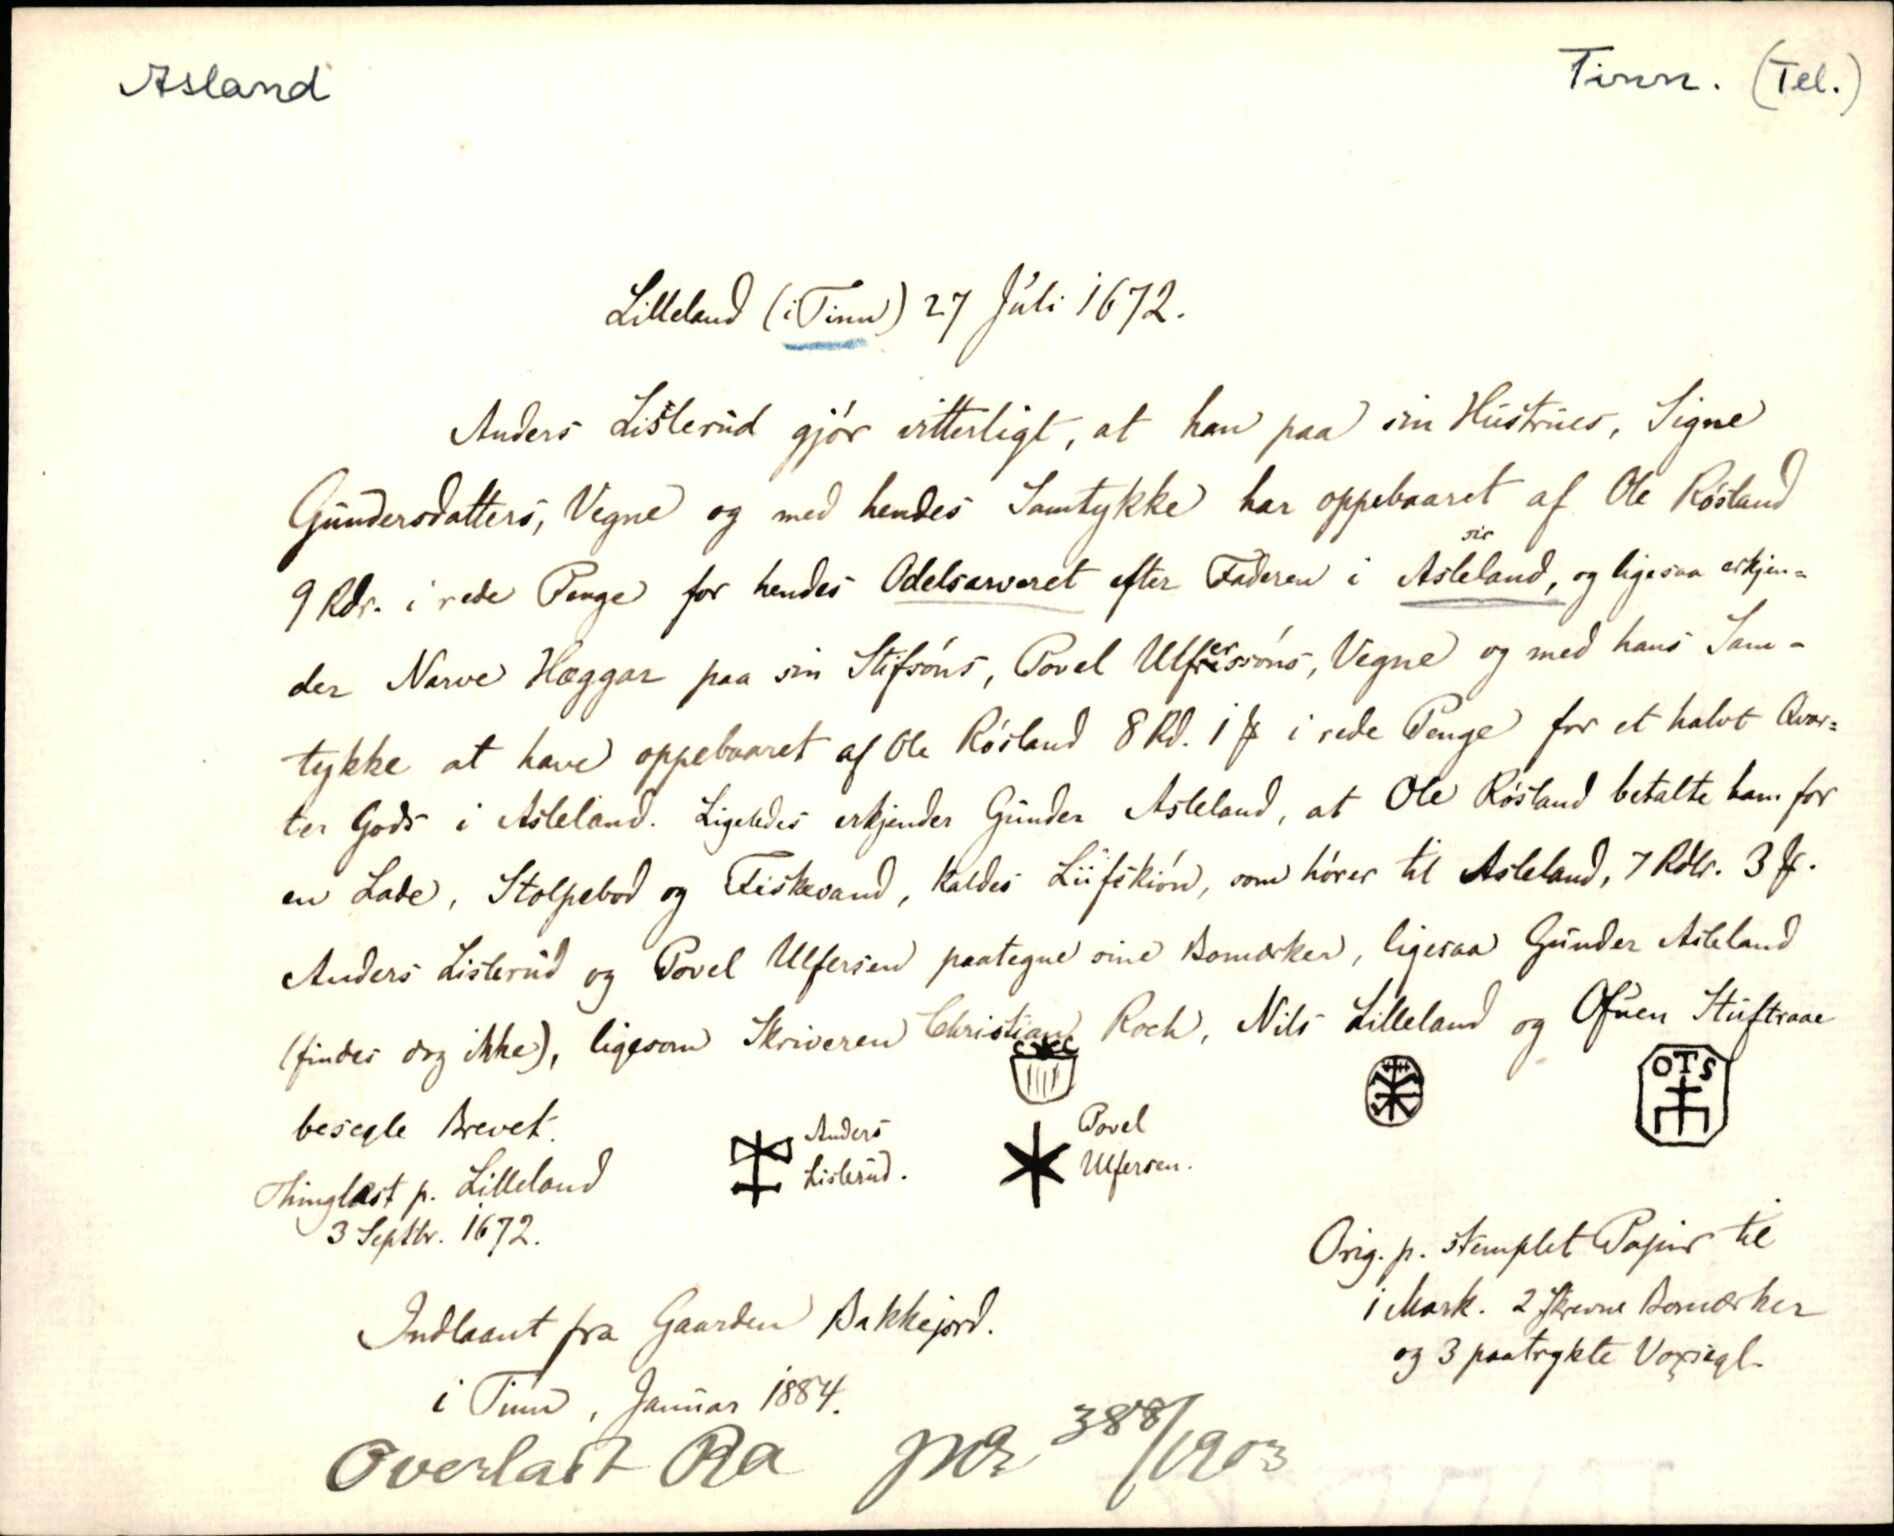 Asland
Tinn. (Tel.)
Lilleland (i Tinn) 27 Juli 1672.
Anders Lislerud gjör vitterligt, at han paa sin Hustrues, Signe
Gundersdatters, Vegne og med hendes Samtykke har oppebaaret af Ole Rösland
sic
9 Rdr. i rede Penge for hendes Odelsarveret efter Faderen i Asleland, og ligesaa erkjen=
der Narve Hæggar paa sin Stifsöns, Povel Ulferssöns, Vegne og med hans Sam-
tykke at have oppebaaret af Ole Rösland 8 Rd. 1 ƒ i rede Penge for et halvt Qvar=
ter Gods i Asleland. Ligeledes erkjender Gunder Asleland, at Ole Rösland betalte ham for
en Lade, Stolpebod og Fiskevand, kaldes Liifskiön, som hörer til Asleland, 7 Rdlr. 3 ƒ.
Anders Lislerud og Povel Ulfersen paategne sine Bomærker, ligesaa Gunder Asleland
(findes dog ikke), ligesom Skriveren Christian Roch, Nils Lilleland og Ofuen Stuftraae
OTS
besegle Brevet.
Anders
Lislerud.
Povel
Ulfersen.
Thinglæst p. Lilleland
3 Septbr. 1672.
Orig. p. stemplet Papiir til
1 Mark. 2 skrevne Bomærker
og 3 paatrykte Voxsegl.
Indlaant fra Gaarden Bakkejord.
i Tinn, Januar 1884.
Overlatt Ra 388/1903